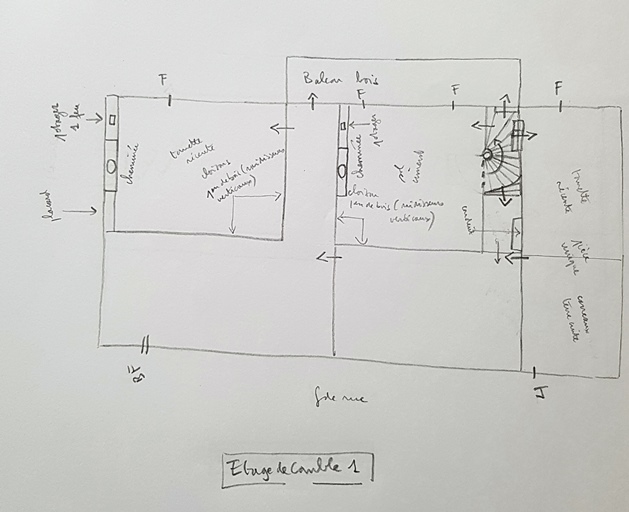 Balcon bois
F
F
F
F
potager
1 feu
cheminée
tomette
récente
cloisons
1 en de bois (raidisseurs
verticaux)
placard
cheminée
potager
sol
ciment
cloison
1 en de bois (raidisseurs
verticaux)
enduit
tomette
récente
pièce
unique
carreaux
terre cuite
BF
F
Gde rue
Etage de Comble 1